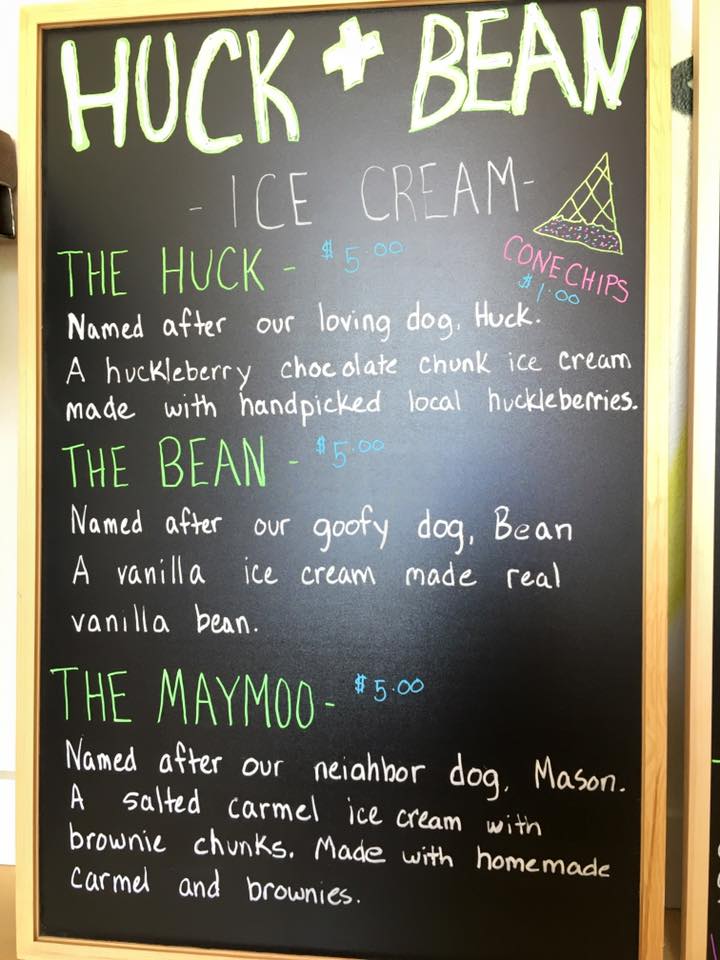 HUCK + BEAN
- ICE CREAM -
THE HUCK - $5.00
CONE CHIPS
$1.00
Named after our loving dog, Huck.
A huckleberry chocolate chunk ice cream
made with handpicked local huckleberries.
THE BEAN - $5.00
Named after our goofy dog, Bean
A vanilla ice cream made real
vanilla bean.
THE MAYMOO - $5.00
Named after our neighbor dog, Mason.
A salted carmel ice cream with
brownie chunks. Made with homemade
carmel and brownies.